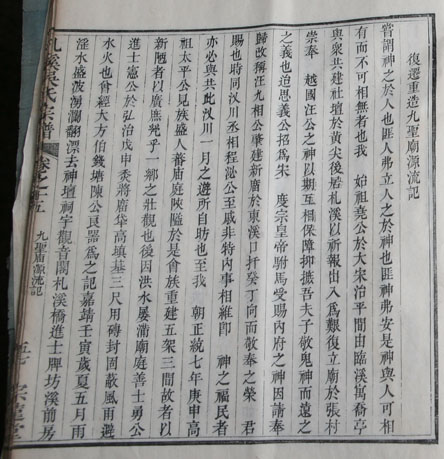 復遷重造九聖廟源流記
嘗謂神之於人也匪人弗立人之於神也匪神弗安是神與人可相
有而不可相無者也我 始祖堯公於大宋治平間由臨溪寓喬亭
與衆共建社壇於黃尖後居札溪以祈報出入爲艱復立廟於張村
崇奉 越國汪公之神以期互相保障抑攄吾夫子敬鬼神而遠之
之義也迨思義公招爲朱 度宗皇帝駙馬受賜內府之神因請奉
歸改稱汪九相公肇建新廟於東溪口扦癸丁向而敬奉之榮 君
賜也時同汊川丞相程泌公至戚非特內事相維即 神之福民者
亦必與共此汊川一月之遊所自昉也至我 朝正統七年庚申高
祖太平公見族盛人蕃廟庭陝隘於是會族重建五架三間故者以
新陋者以廣庶㡬乎一鄉之壯觀也後因洪水屢衝廟庭善士勇公
進士憲公於弘治戊申委將廟基高填基三尺用磚封固蔽風雨避
水火也曾經大方伯錢塘陳公良器爲之記嘉靖壬寅歲夏五月雨
淫水盛波湧瀾翻漂去神壇祠宇觀音閣札溪橋進士牌坊溪前房
札溪吳氏宗譜 卷之十五 九聖廟源流記